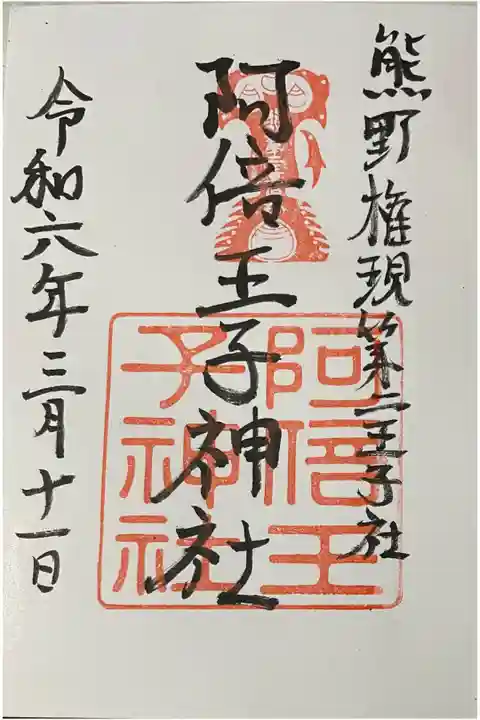 熊野権現第二王子社
阿倍王子神社
令和六年三月十一日
阿倍王子神社